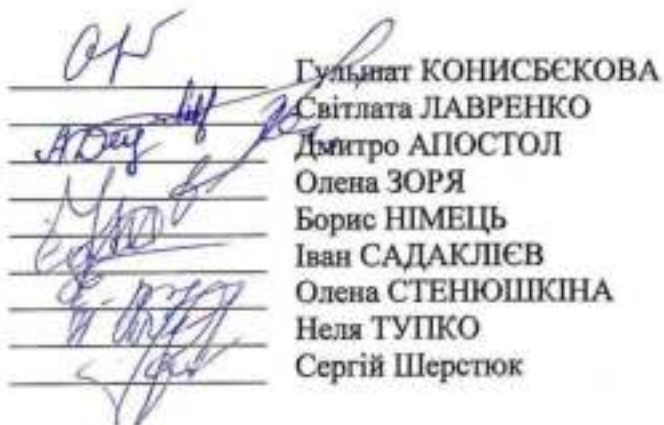 Гульшат КОНИСБЄКОВА
Світлата ЛАВРЕНКО
Дмитро АПОСТОЛ
Олена ЗОРЯ
Борис НІМЕЦЬ
Іван САДАКЛІЄВ
Олена СТЕНЮШКІНА
Неля ТУПКО
Сергій Шерстюк